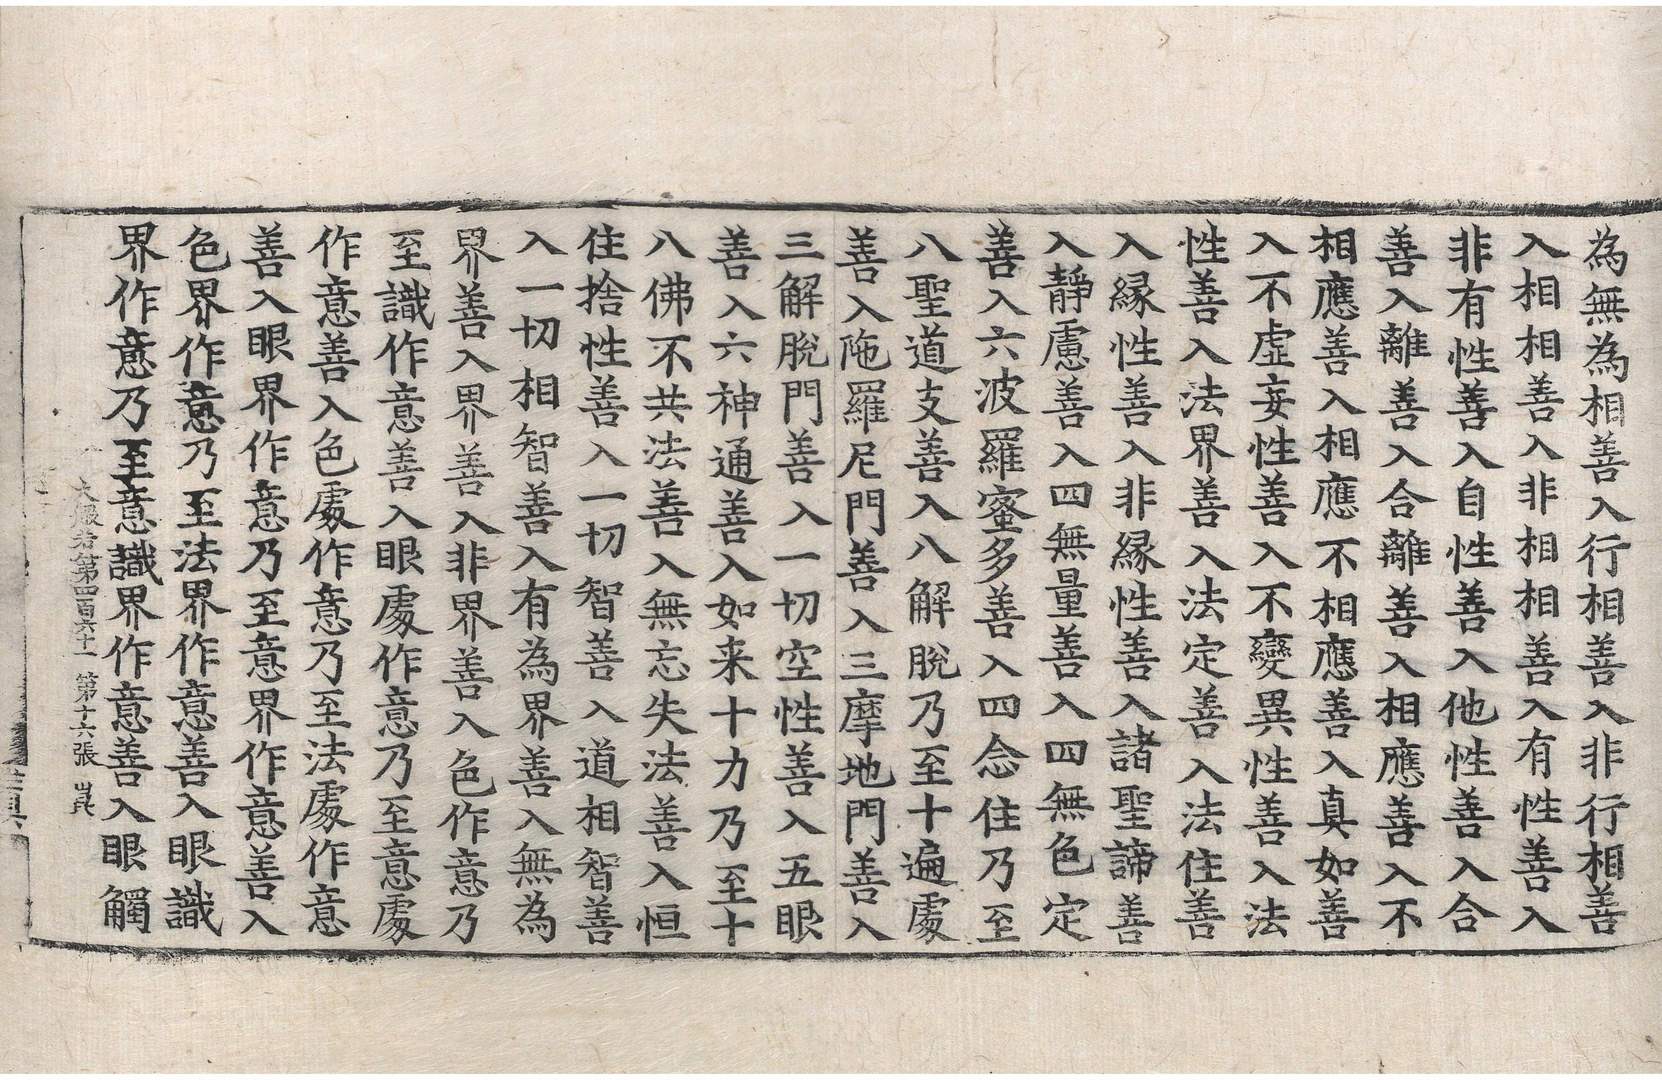 為無為相善入行相善入非行相善
入相相善入非相相善入有性善入
非有性善入自性善入他性善入合
善入離善入合離善入相應善入不
相應善入相應不相應善入真如善
入不虛妄性善入不變異性善入法
性善入法界善入法定善入法住善
入緣性善入非緣性善入諸聖諦善
入靜慮善入四無量善入四無色定
善入六波羅蜜多善入四念住乃至
八聖道支善入八解脫乃至十遍處
善入陁羅尼門善入三摩地門善入
三解脫門善入一切空性善入五眼
善入六神通善入如来十力乃至十
八佛不共法善入無忘失法善入恒
住捨性善入一切智善入道相智善
入一切相智善入有為界善入無為
界善入界善入非界善入色作意乃
至識作意善入眼處作意乃至意處
作意善入色處作意乃至法處作意
善入眼界作意乃至意界作意善入
色界作意乃至法界作意善入眼識
界作意乃至意識界作意善入眼觸
大般若第四百六十一 第十六張